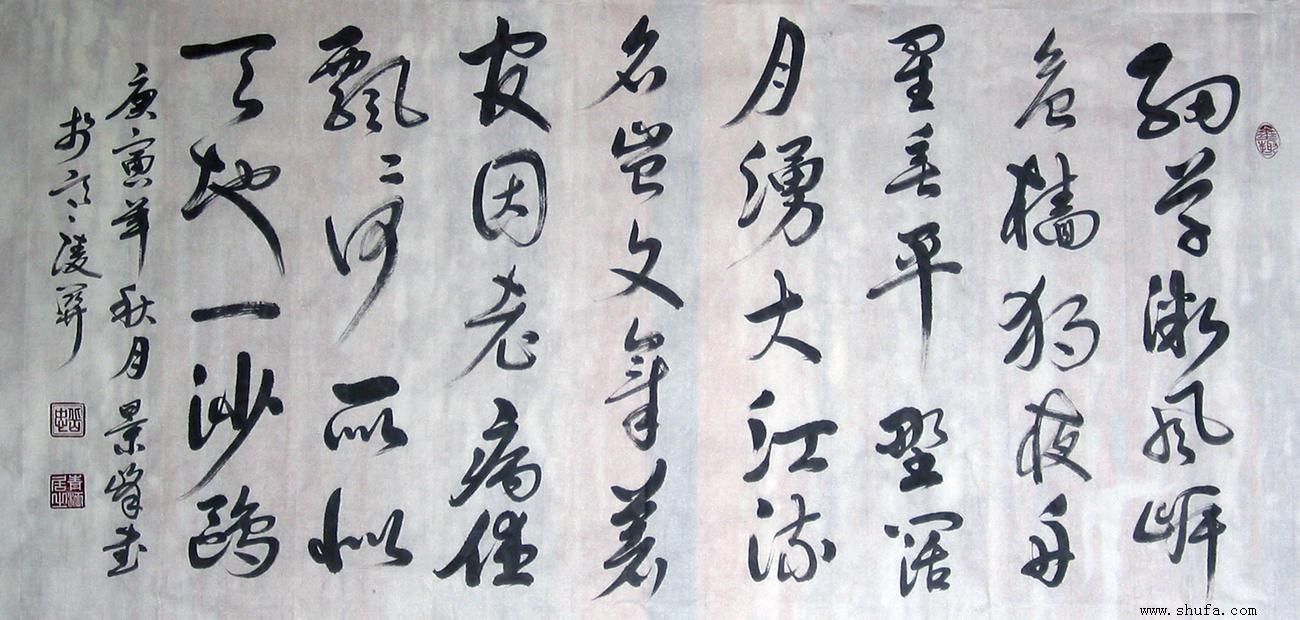 細草微風岸
危檣獨夜舟
星垂平野闊
月湧大江流
名豈文章著
官因老病休
飄〻何所似
天地一沙鷗
庚寅年秋月景峰書
於陵
www.shufa.com